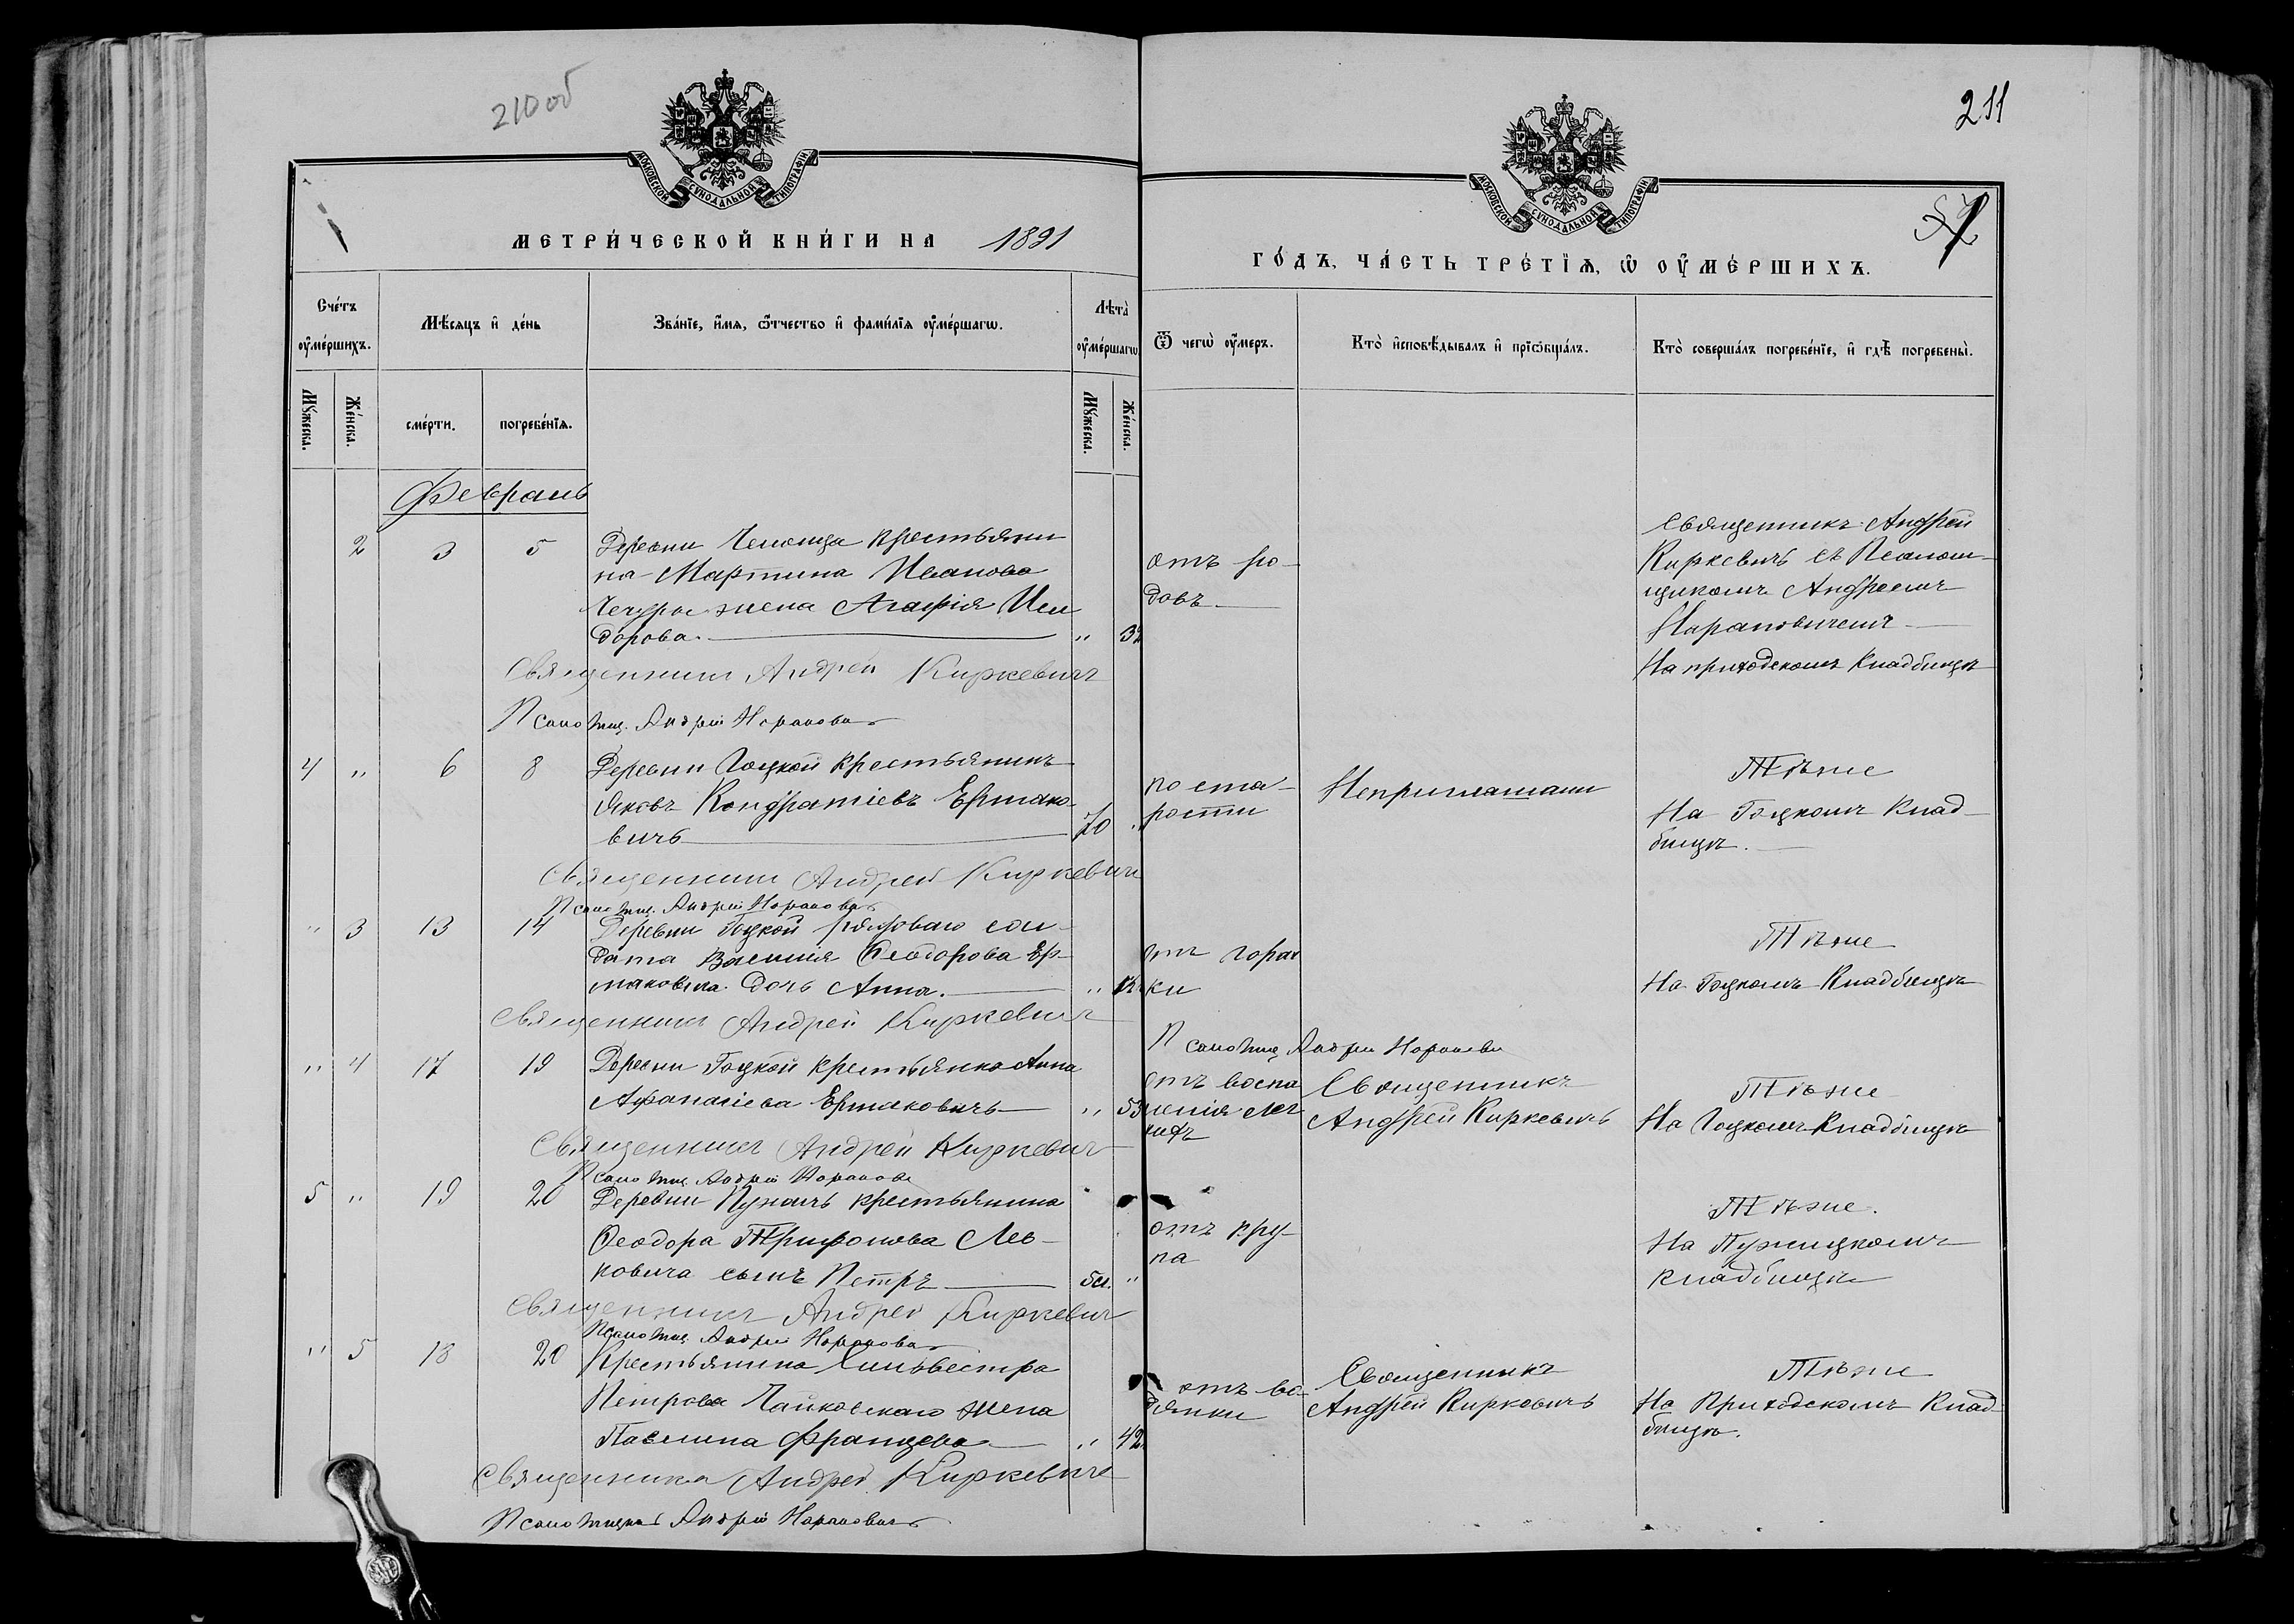 210 об
МОСКОВСКОЙ СѴНОДАЛЬНОЙ ТИПОГРАФІИ
МЕТРИ́ЧЕСКОЙ КНИ́ГИ НА 1891
Сче́тъ оу҆ме́ршихъ.
Мѣ́сяцъ и҆ де́нь
Зва́нїе, и҆́мя, ѻ҆́тчество и҆ фами́лїя оу҆ме́ршагѡ.
Лѣта̀ оу҆ме́ршагѡ
Мꙋ́жеска.
Же́нска.
сме́рти.
погребе́нїѧ.
Мꙋ́жеска.
Же́нска.
Февраль
2 3 5 Деревни крестьяни
на Мартина Иванова
жена Агафія Иси
дорова. " 32
Священникъ Андрей Киркевичъ
Псаломщ. Андрей Наранович
4 " 6 8 Деревни Гоцкой крестьянинъ
Яковъ Кондратіевъ Ермако-
вичъ 70 "
Священникъ Андрей Киркевичъ
Псаломщ. Андрей Наранович
" 3 13 14 Деревни Гоцкой рядоваго сол-
дата Василія Ѳеодорова Ер-
маковича дочь Анна. "
Священникъ Андрей Киркевичъ
" 4 17 19 Деревни Гоцкой крестьянка Анна
Афанасіева Ермаковичъ " 53
Священникъ Андрей Киркевичъ
Псаломщ. Андрей Наранович
5 " 19 20 Деревни Пужичъ крестьянина
Ѳеодора Трифонова Лев-
ковича сынъ Петръ "
Священникъ Андрей Киркевичъ
Псаломщ. Андрей Наранович
" 5 18 20 Крестьянина Сильвестра
Петрова Чайковскаго жена
Павлина Францева " 42
Священникъ Андрей Киркевичъ
Псаломщикъ Андрей Наранович
211
МОСКОВСКОЙ СѴНОДАЛЬНОЙ ТИПОГРАФІИ
ГО́ДЪ, ЧА́СТЬ ТРЕ́ТЇѦ, Ѡ҆ ОУ҆МЕ́РШИХЪ.
Ѿ чегѡ̀ оу҆́меръ.
Кто̀ и҆сповѣ́дывалъ и҆ прїѡбща́лъ.
Кто̀ соверша́лъ погребе́нїе, и҆ гдѣ̀ погребены̀.
отъ ро-
довъ
Священникъ Андрей
Киркевичъ съ Псалом-
щикомъ Андреемъ
Нарановичемъ
На приходскомъ кладбищѣ
по ста-
рости
Неприглашали
Тѣже
На Гоцкомъ клад-
бищѣ.
отъ горяч
ки
Тѣже
На Гоцкомъ кладбищѣ
Псаломщ. Андрей Наранович
отъ воспа
ленія лег
кихъ
Священникъ
Андрей Киркевичъ
Тѣже
На Гоцкомъ кладбищѣ
отъ кру-
па
Тѣже.
На Пужицкомъ
кладбищѣ
отъ во-
дянки
Священникъ
Андрей Киркевичъ
Тѣже
На Приходскомъ клад-
бищѣ.